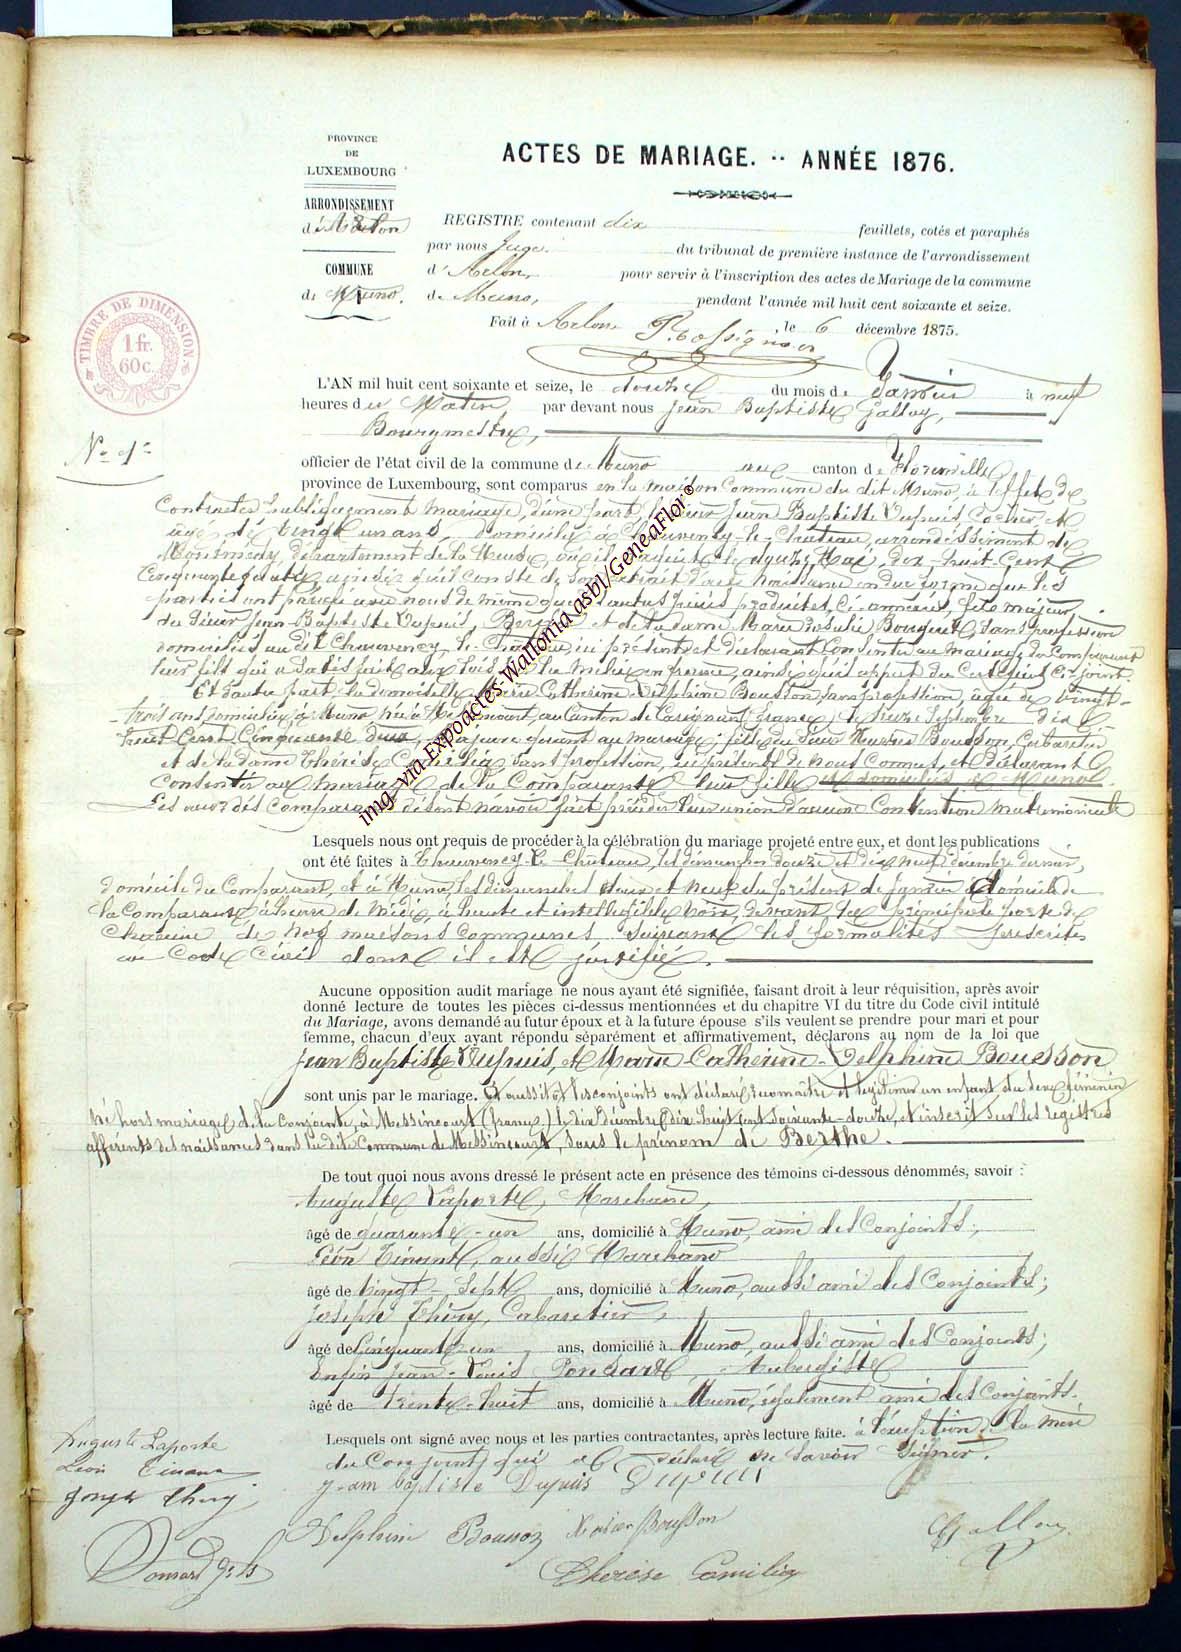 PROVINCE
DE
LUXEMBOURG
ARRONDISSEMENT
d'Arlon
COMMUNE
de Muno.
TIMBRE DE DIMENSION.
1 fr.
60 c.
ACTES DE MARIAGE. -- ANNÉE 1876.
REGISTRE contenant dix feuillets, cotés et paraphés
par nous Juge du tribunal de première instance de l'arrondissement
d'Arlon, pour servir à l'inscription des actes de Mariage de la commune
de Muno, pendant l'année mil huit cent soixante et seize.
Fait à Arlon le 6 décembre 1875.
N° 1
L'AN mil huit cent soixante et seize, le douze du mois de Janvier à neuf
heures du Matin par devant nous Jean Baptiste Galloy,
Bourgmestre,
officier de l'état civil de la commune de Muno canton de Florenville
province de Luxembourg, sont comparus en la maison Commune du dit Muno, à l'effet de
Contracter publiquement mariage, d'une part, Jean Baptiste Dupuis, Cocher,
âgé de vingt un ans, domicilié à Chauvency-le-Château, arrondissement de
Montmédy, département de la Meuse, où il naquit le douze Mai, dix-huit-Cent
Cinquante quatre, ainsi qu'il conste de son extrait d'acte de naissance en due forme que les
parties ont produit avec nous de même que autres pièces produites, Ci-annexées, fils majeur
du Sieur Jean-Baptiste Dupuis, Berger et de la dame Marie Rosalie Bourguet, sans profession
domiciliés au dit Chauvency-le-Château, ici présents et déclarant Consentir au mariage du Comparant
leur fils qui a satisfait aux lois sur la milice en france, ainsi qu'il appert du Certificat Ci-joint.
Et d'autre part, la demoiselle Marie Catherine Delphine Bousson, sans profession, âgée de vingt-
trois ans domiciliée à Muno née à Messincourt, au Canton de Carignan (france) le Septembre dix
huit Cent Cinquante deux, majeure quant au mariage, fille du Sieur Bousson, Cabaretier
et de la dame Thérèse Camélia, sans profession, ici présents de nous Connus, et déclarant
Consentir au mariage de la Comparante leur fille et domiciliés à Muno.
Les deux dits comparants disent n'avoir fait précéder leur union d'aucune Convention matrimoniale
Lesquels nous ont requis de procéder à la célébration du mariage projeté entre eux, et dont les publications
ont été faites à Chauvency-le-Château, les dimanches douze et dix neuf décembre dernier,
domicile du Comparant, et à Muno, les dimanches deux et neuf du présent de Janvier domicile de
la Comparante, à l'heure de midi, à haute et intelligible voix, devant la principale porte de
Chacune de nos maisons communes suivant les formalités prescrites
au Code Civil dont il est justifié.
Aucune opposition audit mariage ne nous ayant été signifiée, faisant droit à leur réquisition, après avoir
donné lecture de toutes les pièces ci-dessus mentionnées et du chapitre VI du titre du Code civil intitulé
du Mariage, avons demandé au futur époux et à la future épouse s'ils veulent se prendre pour mari et pour
femme, chacun d'eux ayant répondu séparément et affirmativement, déclarons au nom de la loi que
Jean Baptiste Dupuis, et Marie Catherine-Delphine Bouesson
sont unis par le mariage. Et aussitôt les conjoints ont déclaré reconnaître et légitimer un enfant du sexe féminin
né hors mariage de la Conjointe, à Messincourt (france) le dix Décembre dix huit cent Soixante-douze, et inscrit sur les registres
afférents des naissances dans la dite Commune de Messincourt, sous le prénom de Berthe.
De tout quoi nous avons dressé le présent acte en présence des témoins ci-dessous dénommés, savoir :
Auguste Laporte, Marchand,
âgé de quarante-un ans, domicilié à Muno, ami des Conjoints;
Léon Tinant, aussi Marchand
âgé de vingt-sept ans, domicilié à Muno, aussi ami des Conjoints;
Joseph Thiry, Cabaretier,
âgé de Cinquante-un ans, domicilié à Muno, aussi ami des Conjoints;
Enfin Jean-Louis Ponsard, Aubergiste
âgé de trente-huit ans, domicilié à Muno, également ami des Conjoints.
Lesquels ont signé avec nous et les parties contractantes, après lecture faite. à l'exception de la mère
du Conjoint qui a déclaré ne Savoir Signer.
Auguste Laporte
Léon Tinant
Joseph Thiry
jean baptiste Dupuis Dupuis
Delphine Bousson
Bousson
Galloy
Thérèse Camélia
img via Expoactes-Wallonia asbl/GeneaFlor©